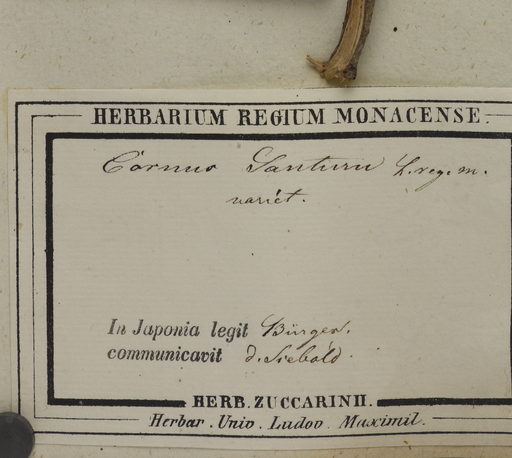 HERBARIUM REGIUM MONACENSE.
Cornus h. reg. m.
variet.
In Japonia legit Bürger.
communicavit d. Siebold.
HERB. ZUCCARINII.
Herbar. Univ. Ludov. Maximil.